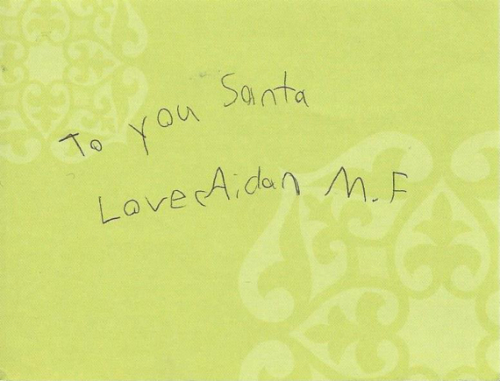 To you Santa
Love Aidan M.F